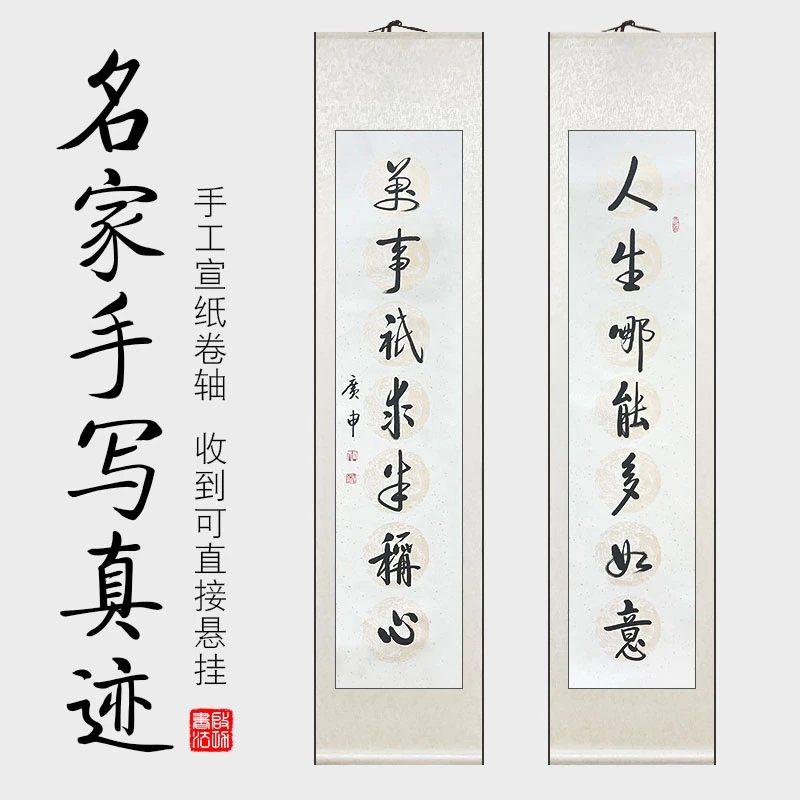 名家手写真迹
手工宣纸卷轴 收到可直接悬挂
人生哪能多如意
萬事祇求半稱心
廣申